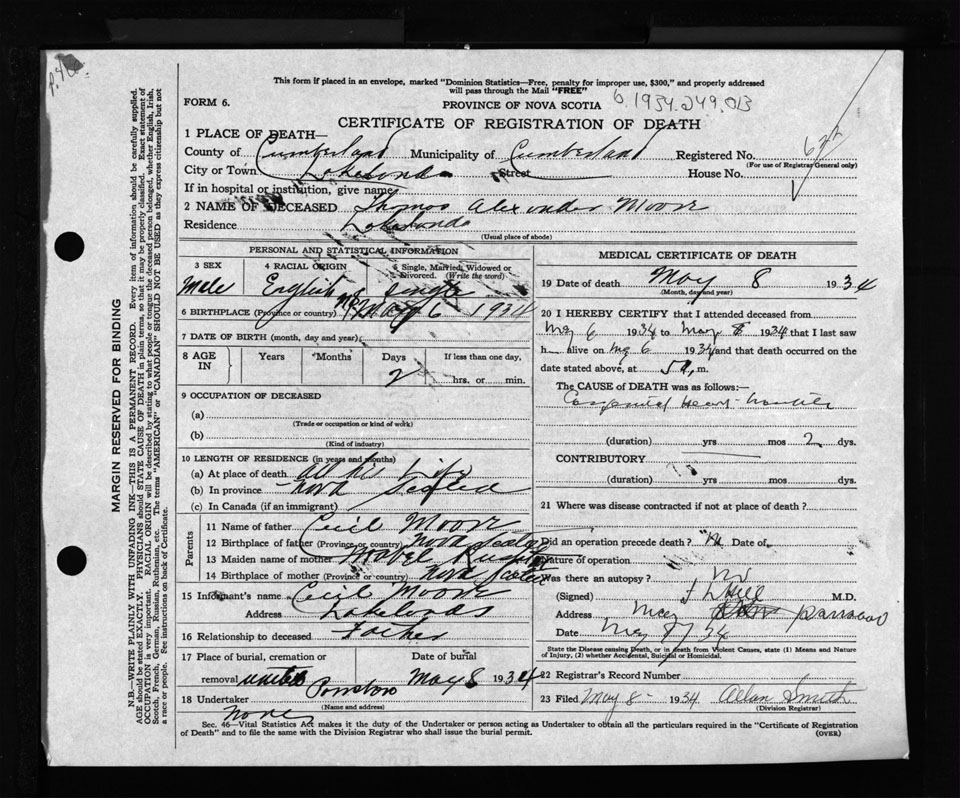 This form if placed in an envelope, marked "Dominion Statistics—Free, penalty for improper use, $300," and properly addressed
will pass through the Mail "FREE"
FORM 6.
PROVINCE OF NOVA SCOTIA
6.1934.249.013
CERTIFICATE OF REGISTRATION OF DEATH
1 PLACE OF DEATH—
County of Cumberland Municipality of Cumberland Registered No.
(For use of Registrar General only)
City or Town Lakelands Street House No.
If in hospital or institution, give name
2 NAME OF DECEASED Thomas Alexander Moore
Residence Lakelands
(Usual place of abode)
PERSONAL AND STATISTICAL INFORMATION
3 SEX 4 RACIAL ORIGIN 5 Single, Married, Widowed or Divorced. (Write the word)
Male English Single
6 BIRTHPLACE (Province or country) May 6 1934
7 DATE OF BIRTH (month, day and year)
8 AGE IN Years Months Days If less than one day,
2 hrs. or min.
9 OCCUPATION OF DECEASED
(a)
(Trade or occupation or kind of work)
(b)
(Kind of industry)
10 LENGTH OF RESIDENCE (in years and months)
(a) At place of death all his life
(b) In province Nova Scotia
(c) In Canada (if an immigrant)
Parents
11 Name of father Cecil Moore
12 Birthplace of father (Province or country) Nova Scotia
13 Maiden name of mother Mabel
14 Birthplace of mother (Province or country) Nova Scotia
15 Informant's name Cecil Moore
Address Lakelands
16 Relationship to deceased Father
17 Place of burial, cremation or removal Date of burial
May 8 1934
18 Undertaker
(Name and address)
None
MEDICAL CERTIFICATE OF DEATH
19 Date of death May 8 1934
(Month, day and year)
20 I HEREBY CERTIFY that I attended deceased from
May 6 1934 to May 8 1934 that I last saw
h alive on May 6 1934 and that death occurred on
date stated above, at 5 a, m.
The CAUSE OF DEATH was as follows:—
Congenital Heart trouble
(duration) yrs mos 2 dys.
CONTRIBUTORY
(duration) yrs mos dys.
21 Where was disease contracted if not at place of death?
Did an operation precede death? No Date of
Nature of operation
Was there an autopsy? No
(Signed) Hill M.D.
Address Parrsboro
Date May 8/34
State the Disease causing Death, or in death from Violent Causes, state (1) Means and Nature
of Injury, (2) whether Accidental, Suicidal or Homicidal.
22 Registrar's Record Number
23 Filed May 8 - 1934 Allan Smith
(Division Registrar)
Sec. 46—Vital Statistics Act makes it the duty of the Undertaker or person acting as Undertaker to obtain all the particulars required in the "Certificate of Registration
of Death" and to file the same with the Division Registrar who shall issue the burial permit.
(OVER)
MARGIN RESERVED FOR BINDING
N.B.—WRITE PLAINLY WITH UNFADING INK—THIS IS A PERMANENT RECORD. Every item of information should be carefully supplied.
AGE should be stated EXACTLY. PHYSICIANS should STATE CAUSE OF DEATH in plain terms, so that it may be properly classified. Exact statement of
OCCUPATION is very important. RACIAL ORIGIN will be described by stating to what people or tongue the deceased person belonged, whether English, Irish,
Scotch, French, German, Russian, Ruthenian, etc. The terms "AMERICAN" or "CANADIAN" SHOULD NOT BE USED as they express citizenship but not
a race or people. See instructions on back of Certificate.